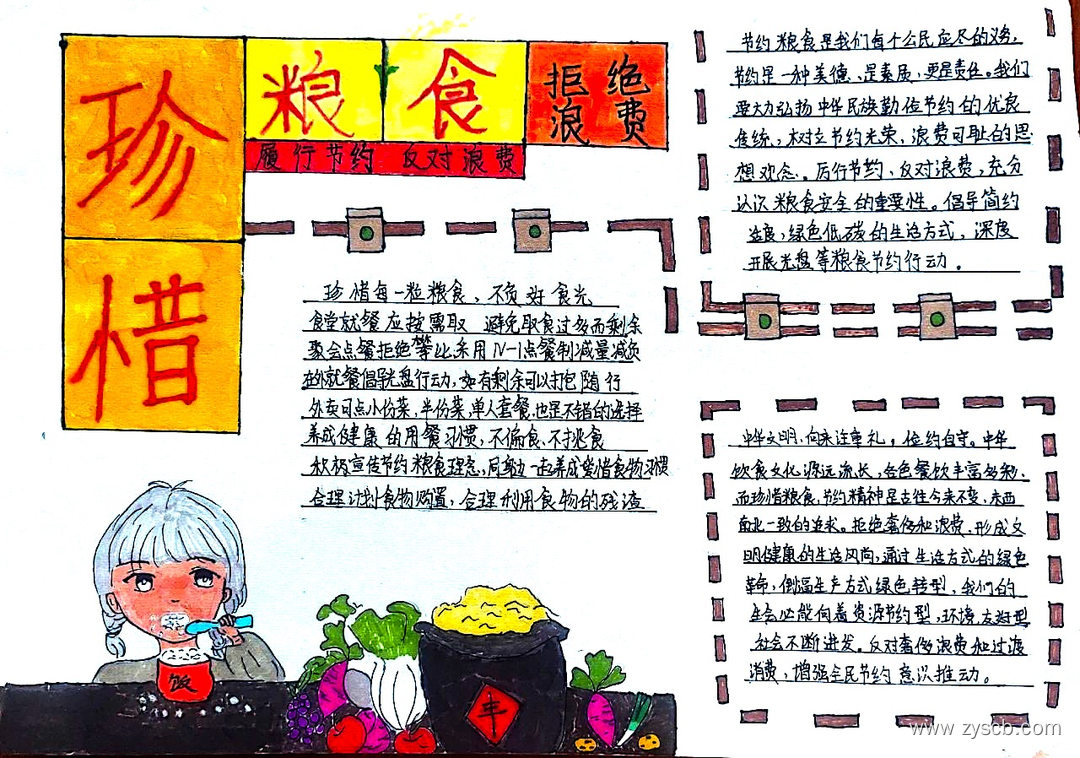 珍惜
粮食
拒绝
浪费
履行节约 反对浪费
珍惜每一粒粮食、不负好食光
食堂就餐应按需取 避免取食过多而剩余
聚会点餐拒绝攀比采用N-1点餐制减量减负
在外就餐倡导光盘行动,如有剩余可以打包随行
外卖可点小份菜,半份菜,单人套餐,也是不错的选择
养成健康的用餐习惯,不偏食、不挑食
积极宣传节约粮食理念,同身边一起养成爱惜食物习惯
合理计划食物购置,合理利用食物的残渣
节约粮食是我们每个公民应尽的义务,
节约是一种美德、是素质,更是责任。我们
要大力弘扬中华民族勤俭节约的优良
传统,树立节约光荣、浪费可耻的思
想观念。厉行节约、反对浪费,充分
认识粮食安全的重要性。倡导简约
适度,绿色低碳的生活方式,深度
开展光盘等粮食节约行动。
中华文明,向来注重礼,俭约自守。中华
饮食文化源远流长,各色餐饮丰富多彩,
而珍惜粮食,节约精神是古往今来不变,东西
南北一致的追求。拒绝奢侈和浪费,形成文
明健康的生活风尚,通过生活方式的绿色
革命,倒逼生产方式绿色转型,我们的
生会必能向着资源节约型,环境友好型
社会不断进发。反对奢侈浪费和过度
消费,增强全民节约意识推动。
饭
丰
www.zyscb.com